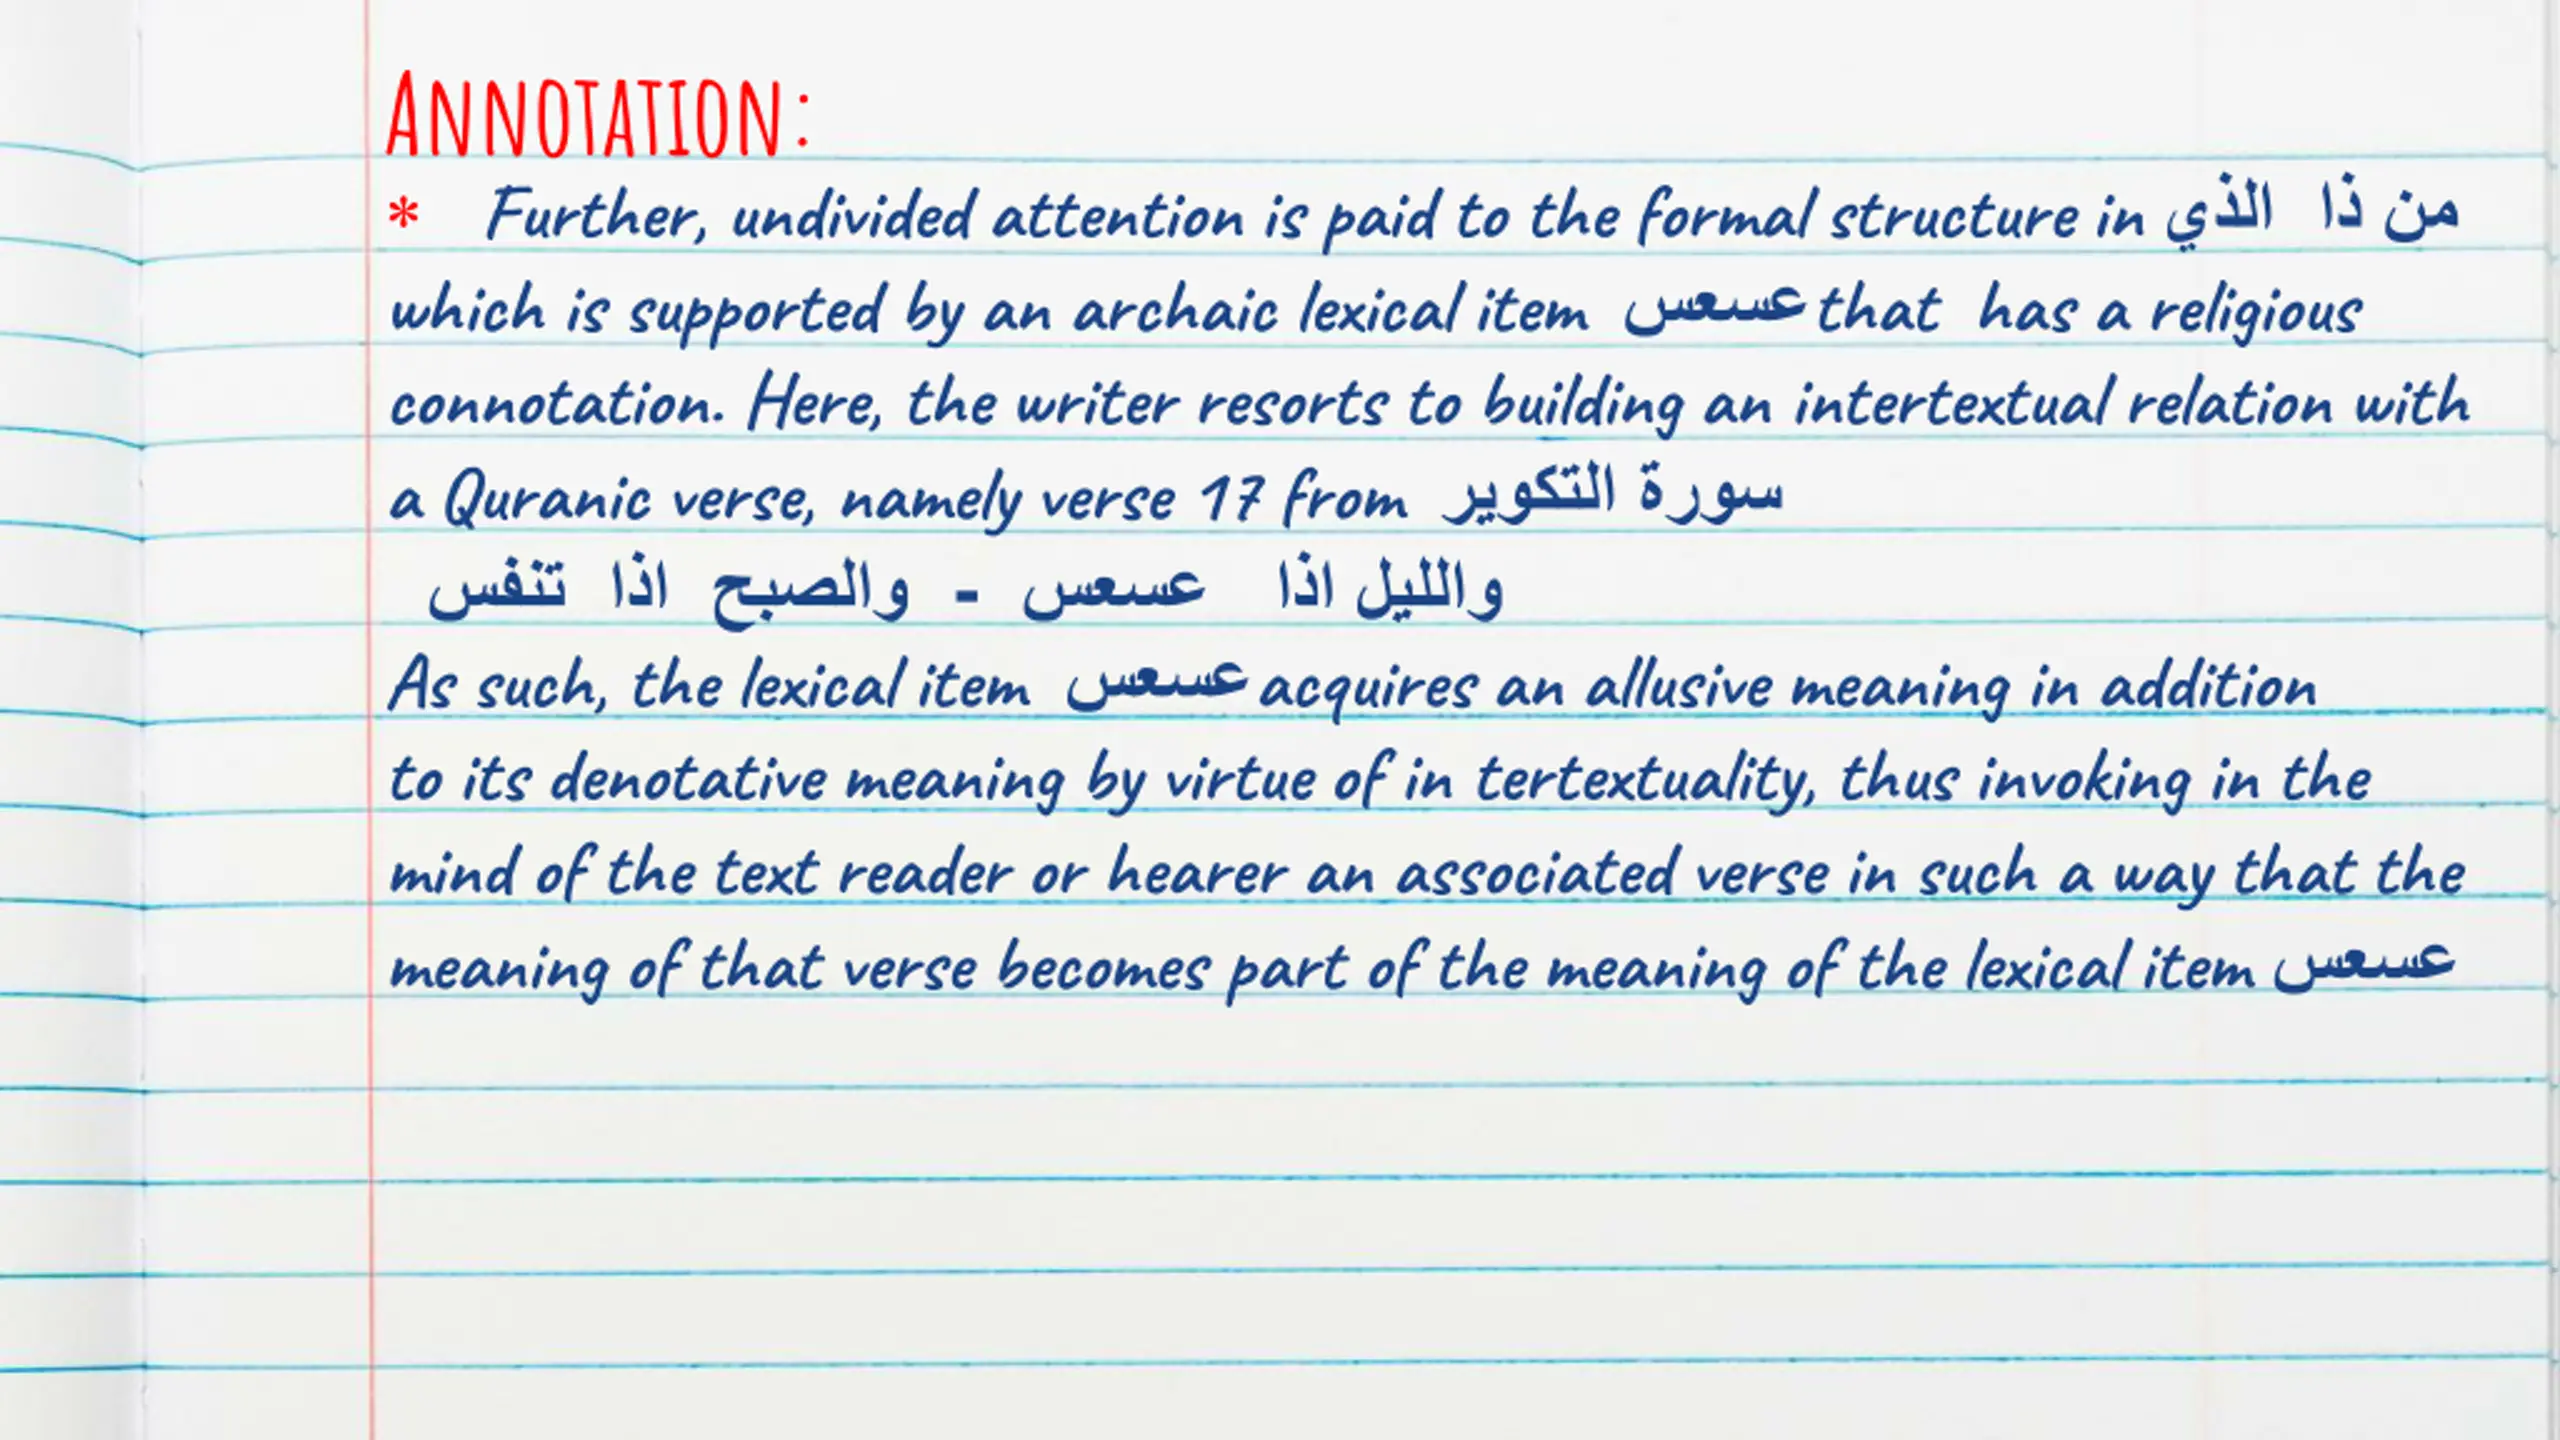 ANNOTATION:
* Further, undivided attention is paid to the formal structure in من ذا الذي
which is supported by an archaic lexical item عسعس that has a religious
connotation. Here, the writer resorts to building an intertextual relation with
a Quranic verse, namely verse 17 from سورة التكوير
والليل اذا عسعس - والصبح اذا تنفس
As such, the lexical item عسعس acquires an allusive meaning in addition
to its denotative meaning by virtue of in tertextuality, thus invoking in the
mind of the text reader or hearer an associated verse in such a way that the
meaning of that verse becomes part of the meaning of the lexical item عسعس